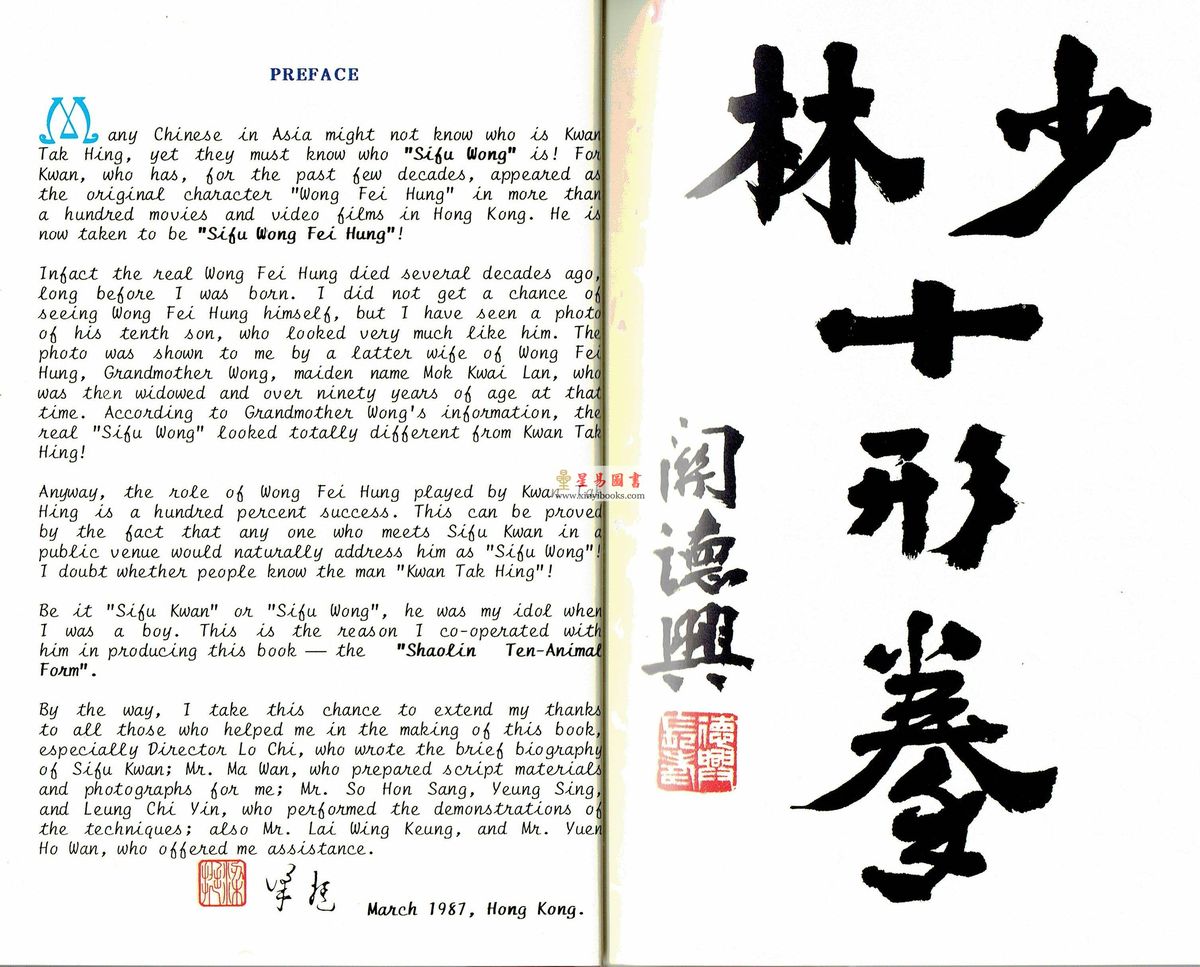 PREFACE
Many Chinese in Asia might not know who is Kwan
Tak Hing, yet they must know who "Sifu Wong" is! For
Kwan, who has, for the past few decades, appeared as
the original character "Wong Fei Hung" in more than
a hundred movies and video films in Hong Kong. He is
now taken to be "Sifu Wong Fei Hung"!
Infact the real Wong Fei Hung died several decades ago,
long before I was born. I did not get a chance of
seeing Wong Fei Hung himself, but I have seen a photo
of his tenth son, who looked very much like him. The
photo was shown to me by a latter wife of Wong Fei
Hung, Grandmother Wong, maiden name Mok Kwai Lan, who
was then widowed and over ninety years of age at that
time. According to Grandmother Wong's information, the
real "Sifu Wong" looked totally different from Kwan Tak
Hing!
Anyway, the role of Wong Fei Hung played by Kwan
Hing is a hundred percent success. This can be proved
by the fact that any one who meets Sifu Kwan in a
public venue would naturally address him as "Sifu Wong"!
I doubt whether people know the man "Kwan Tak Hing"!
Be it "Sifu Kwan" or "Sifu Wong", he was my idol when
I was a boy. This is the reason I co-operated with
him in producing this book — the "Shaolin Ten-Animal
Form".
By the way, I take this chance to extend my thanks
to all those who helped me in the making of this book,
especially Director Lo Chi, who wrote the brief biography
of Sifu Kwan; Mr. Ma Wan, who prepared script materials
and photographs for me; Mr. So Hon Sang, Yeung Sing,
and Leung Chi Yin, who performed the demonstrations of
the techniques; also Mr. Lai Wing Keung, and Mr. Yuen
Ho Wan, who offered me assistance.
梁挺
March 1987, Hong Kong.
星易圖書
www.xinyibooks.com
少林十形拳
關德興